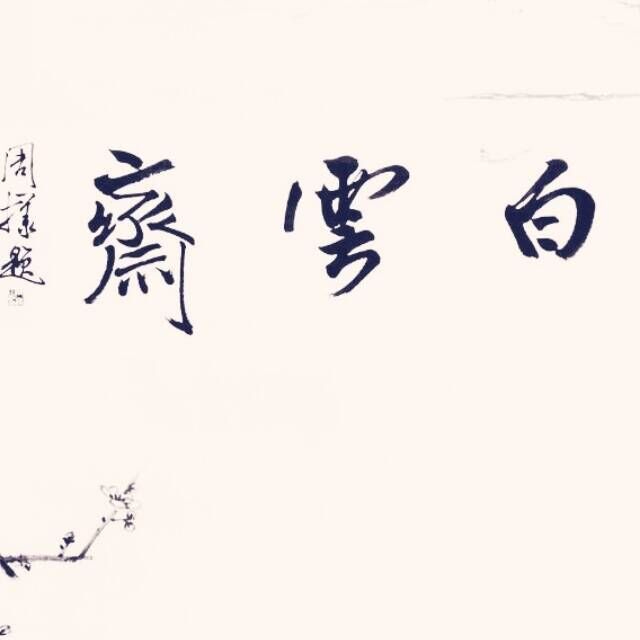 白雲齋
周樣題